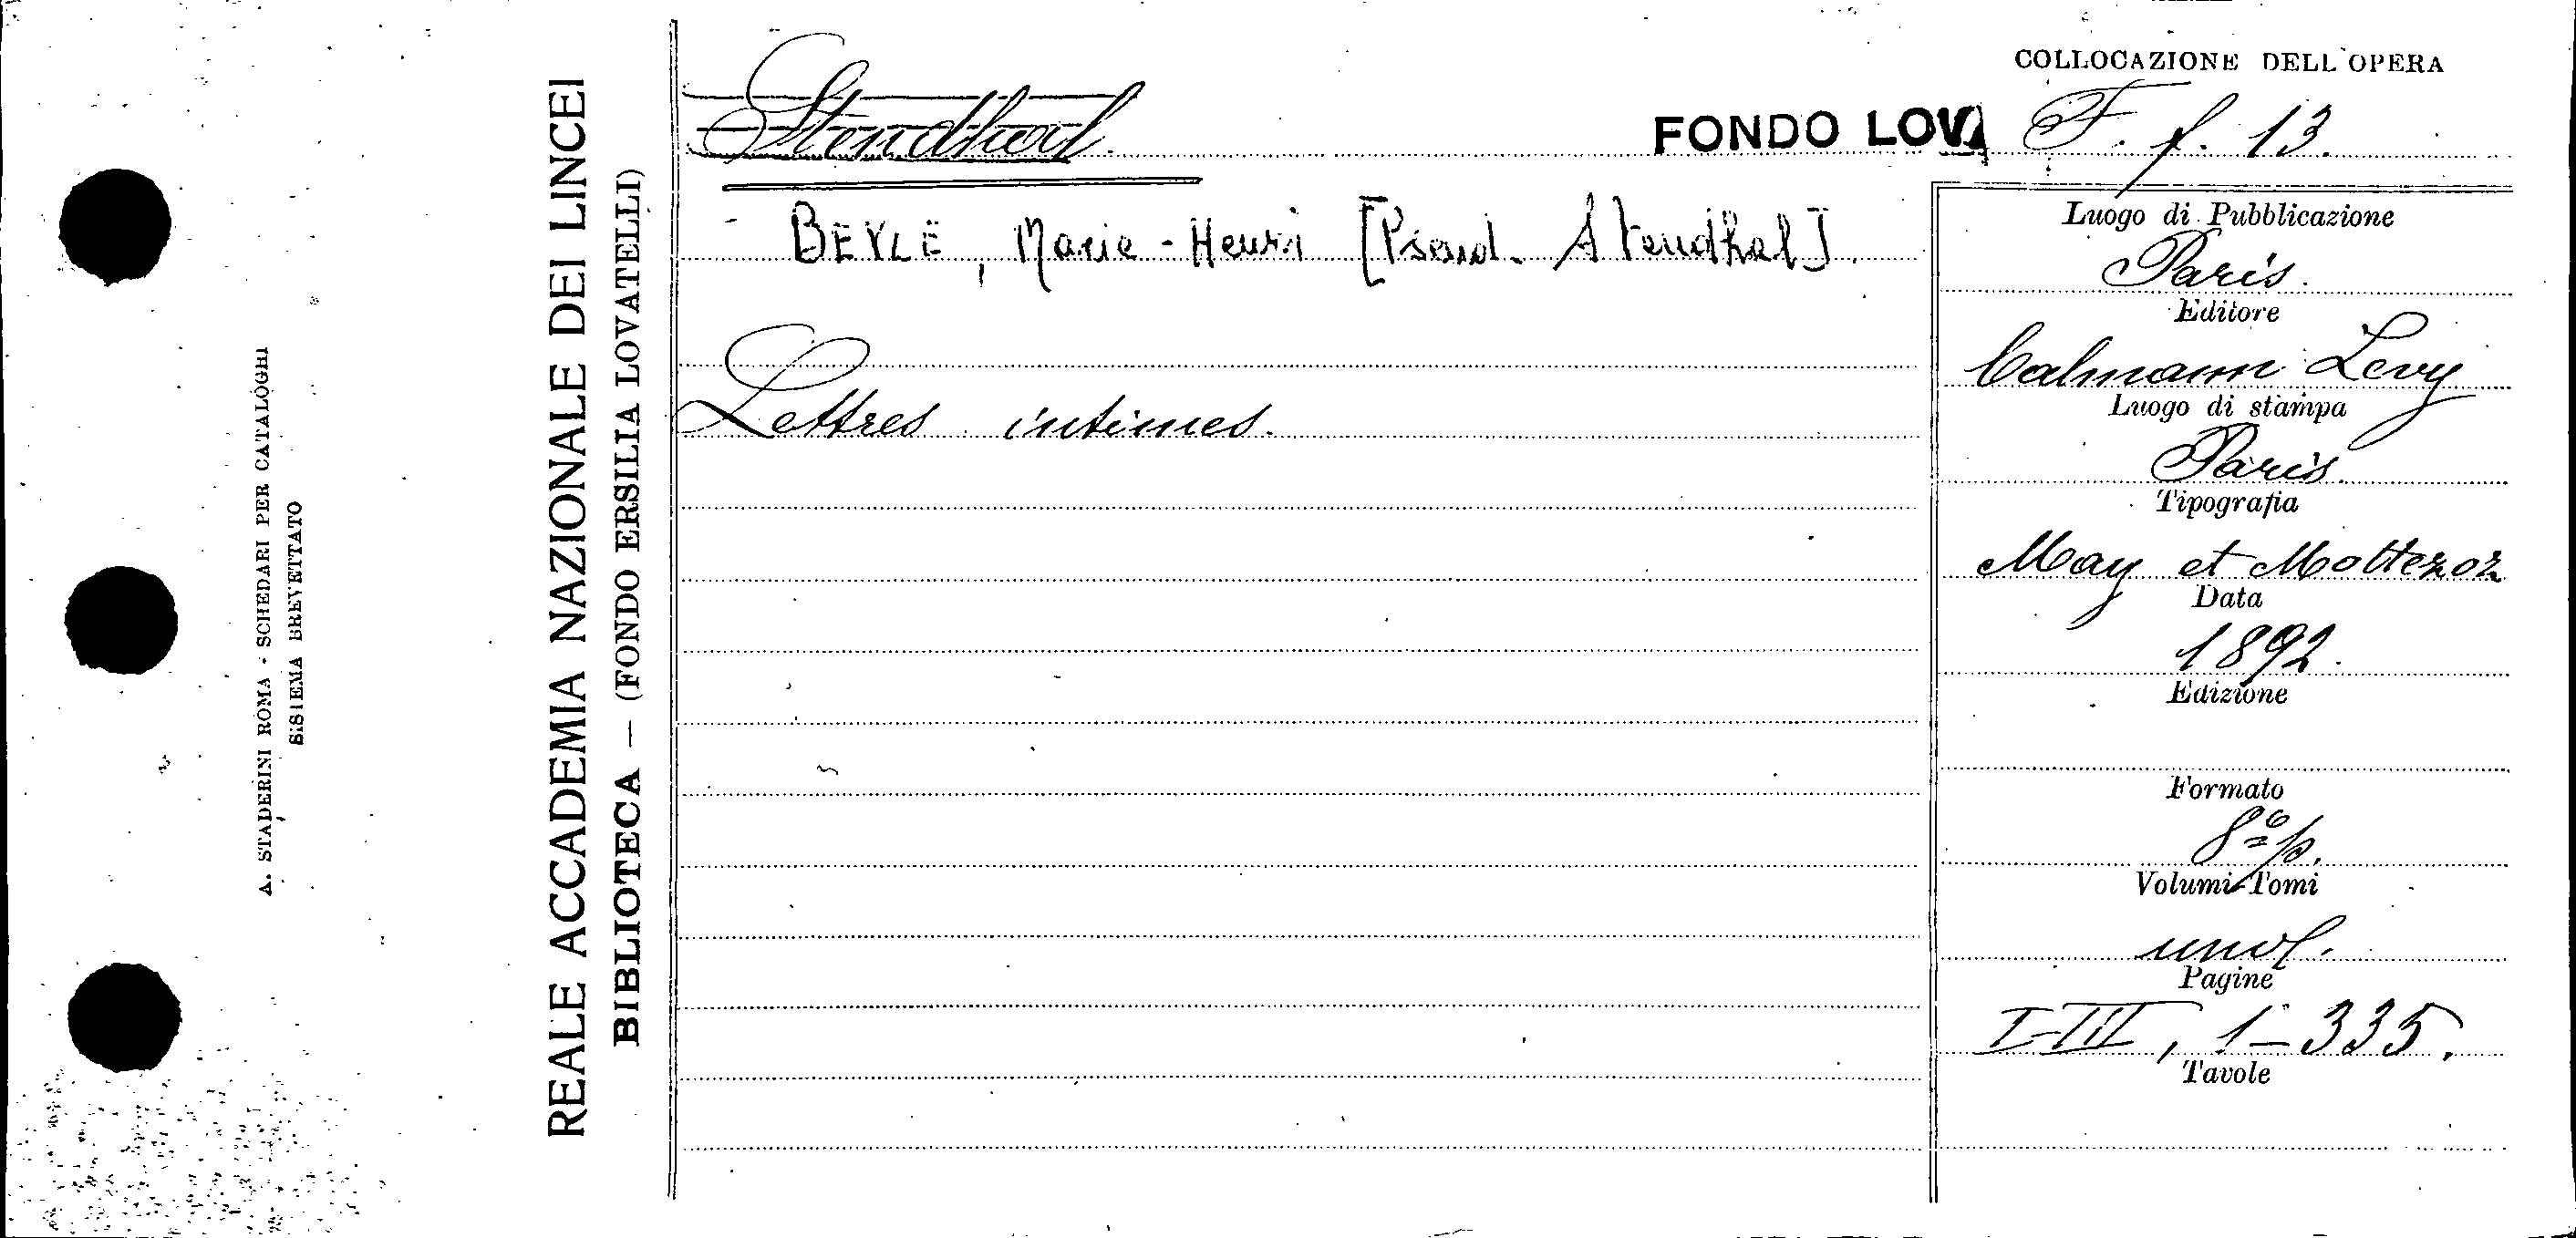 A. STADERINI ROMA - SCHEDARI PER CATALOGHI
SISTEMA BREVETTATO
REALE ACCADEMIA NAZIONALE DEI LINCEI
BIBLIOTECA — (FONDO ERSILIA LOVATELLI)
Stendhal
BEYLE, Marie-Henri [Pseud. Stendhal].
Lettres intimes.
COLLOCAZIONE DELL'OPERA
FONDO LOVA F. f. 13.
Luogo di Pubblicazione
Paris.
Editore
Calmann Levy
Luogo di stampa
Paris.
Tipografia
May et Motteroz
Data
1892.
Edizione
Formato
8º p.
Volumi-Tomi
un vol.
Pagine
I-III, 1-335.
Tavole